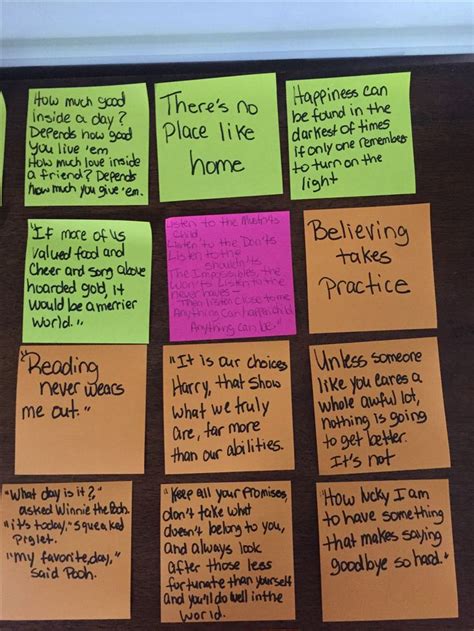 How much good
inside a day?
Depends how good
you live 'em
How much love inside
a friend? Depends
how much you give 'em.
There's no
Place like
home
Happiness can
be found in the
darkest of times
if only one remembers
to turn on the
light
"If more of us
valued food and
Cheer and song above
hoarded gold, it
would be a merrier
world."
Listen to the Mustn'ts
Child,
Listen to the Don'ts
Listen to the
Shouldn'ts
The Impossibles, the
Won'ts Listen to the
never haves-
Then listen close to me
Anything can happen child
Anything can be."
Believing
takes
Practice
"Reading
never wears
me out."
"It is our choices
Harry, that show
what we truly
are, far more
than our abilities.
Unless someone
like you cares a
whole awful lot,
nothing is going
to get better.
It's not
"What day is it?"
asked Winnie the Pooh.
"it's today," squeaked
Piglet.
"my favorite day,"
said Pooh.
"Keep all your Promises,
don't take what
doesn't belong to you,
and always look
after those less
fortunate than yourself
and you'll do well in the
world.
"How lucky I am
to have something
that makes saying
goodbye so hard."